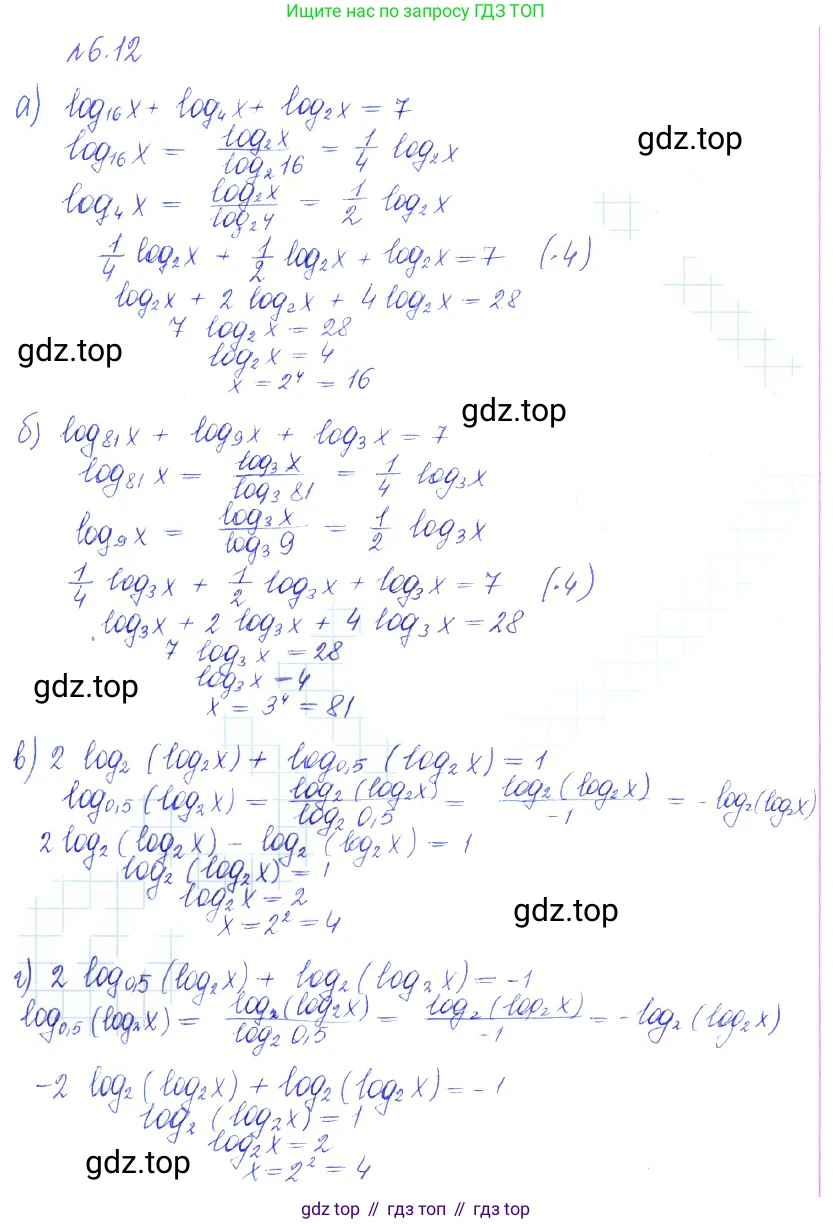 Ищите нас по запросу ГДЗ ТОП
№6.12
а) log₁₆x + log₄x + log₂x = 7
log₁₆x = log₂x / log₂16 = 1/4 log₂x
gdz.top
log₄x = log₂x / log₂4 = 1/2 log₂x
1/4 log₂x + 1/2 log₂x + log₂x = 7 (·4)
log₂x + 2 log₂x + 4 log₂x = 28
7 log₂x = 28
gdz.top
log₂x = 4
x = 2⁴ = 16
gdz.top
б) log₈₁x + log₉x + log₃x = 7
log₈₁x = log₃x / log₃81 = 1/4 log₃x
log₉x = log₃x / log₃9 = 1/2 log₃x
1/4 log₃x + 1/2 log₃x + log₃x = 7 (·4)
log₃x + 2 log₃x + 4 log₃x = 28
7 log₃x = 28
gdz.top
log₃x – 4
x = 3⁴ = 81
в) 2 log₂(log₂x) + log₀,₅(log₂x) = 1
log₀,₅(log₂x) = log₂(log₂x) / log₂0,5 = log₂(log₂x) / -1 = -log₂(log₂x)
2 log₂(log₂x) - log₂(log₂x) = 1
log₂(log₂x) = 1
log₂x = 2
gdz.top
x = 2² = 4
г) 2 log₀,₅(log₂x) + log₂(log₂x) = -1
log₀,₅(log₂x) = log₂(log₂x) / log₂0,5 = log₂(log₂x) / -1 = -log₂(log₂x)
-2 log₂(log₂x) + log₂(log₂x) = -1
log₂(log₂x) = 1
log₂x = 2
gdz.top
x = 2² = 4
gdz top // гдз топ // gdz top